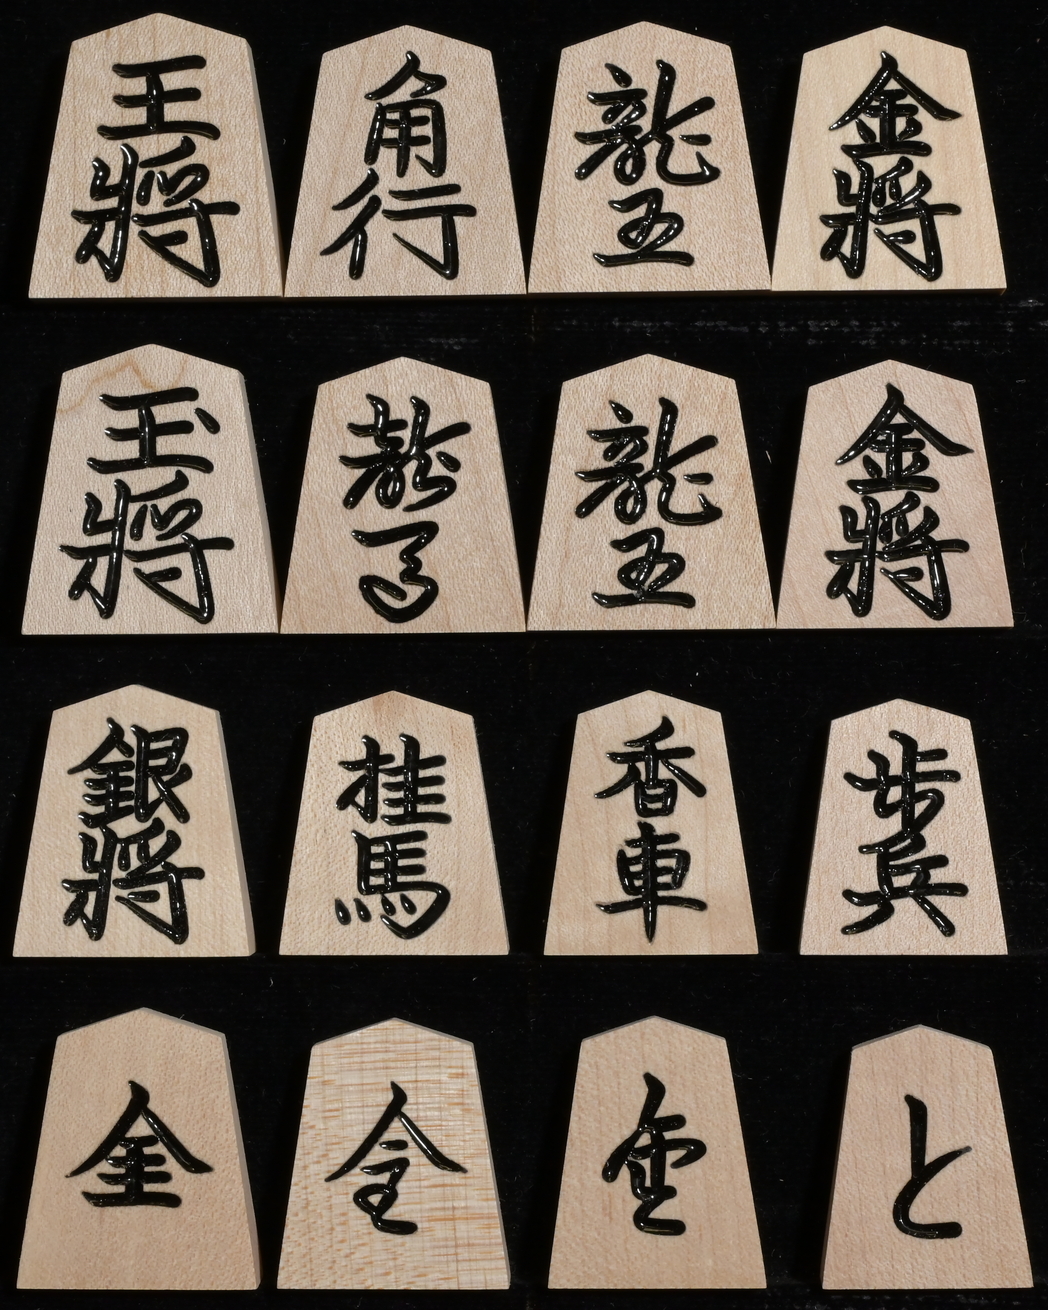 王將
角行
龍王
金將
玉將
龍馬
龍王
金將
銀將
桂馬
香車
歩兵
金
金
金
と